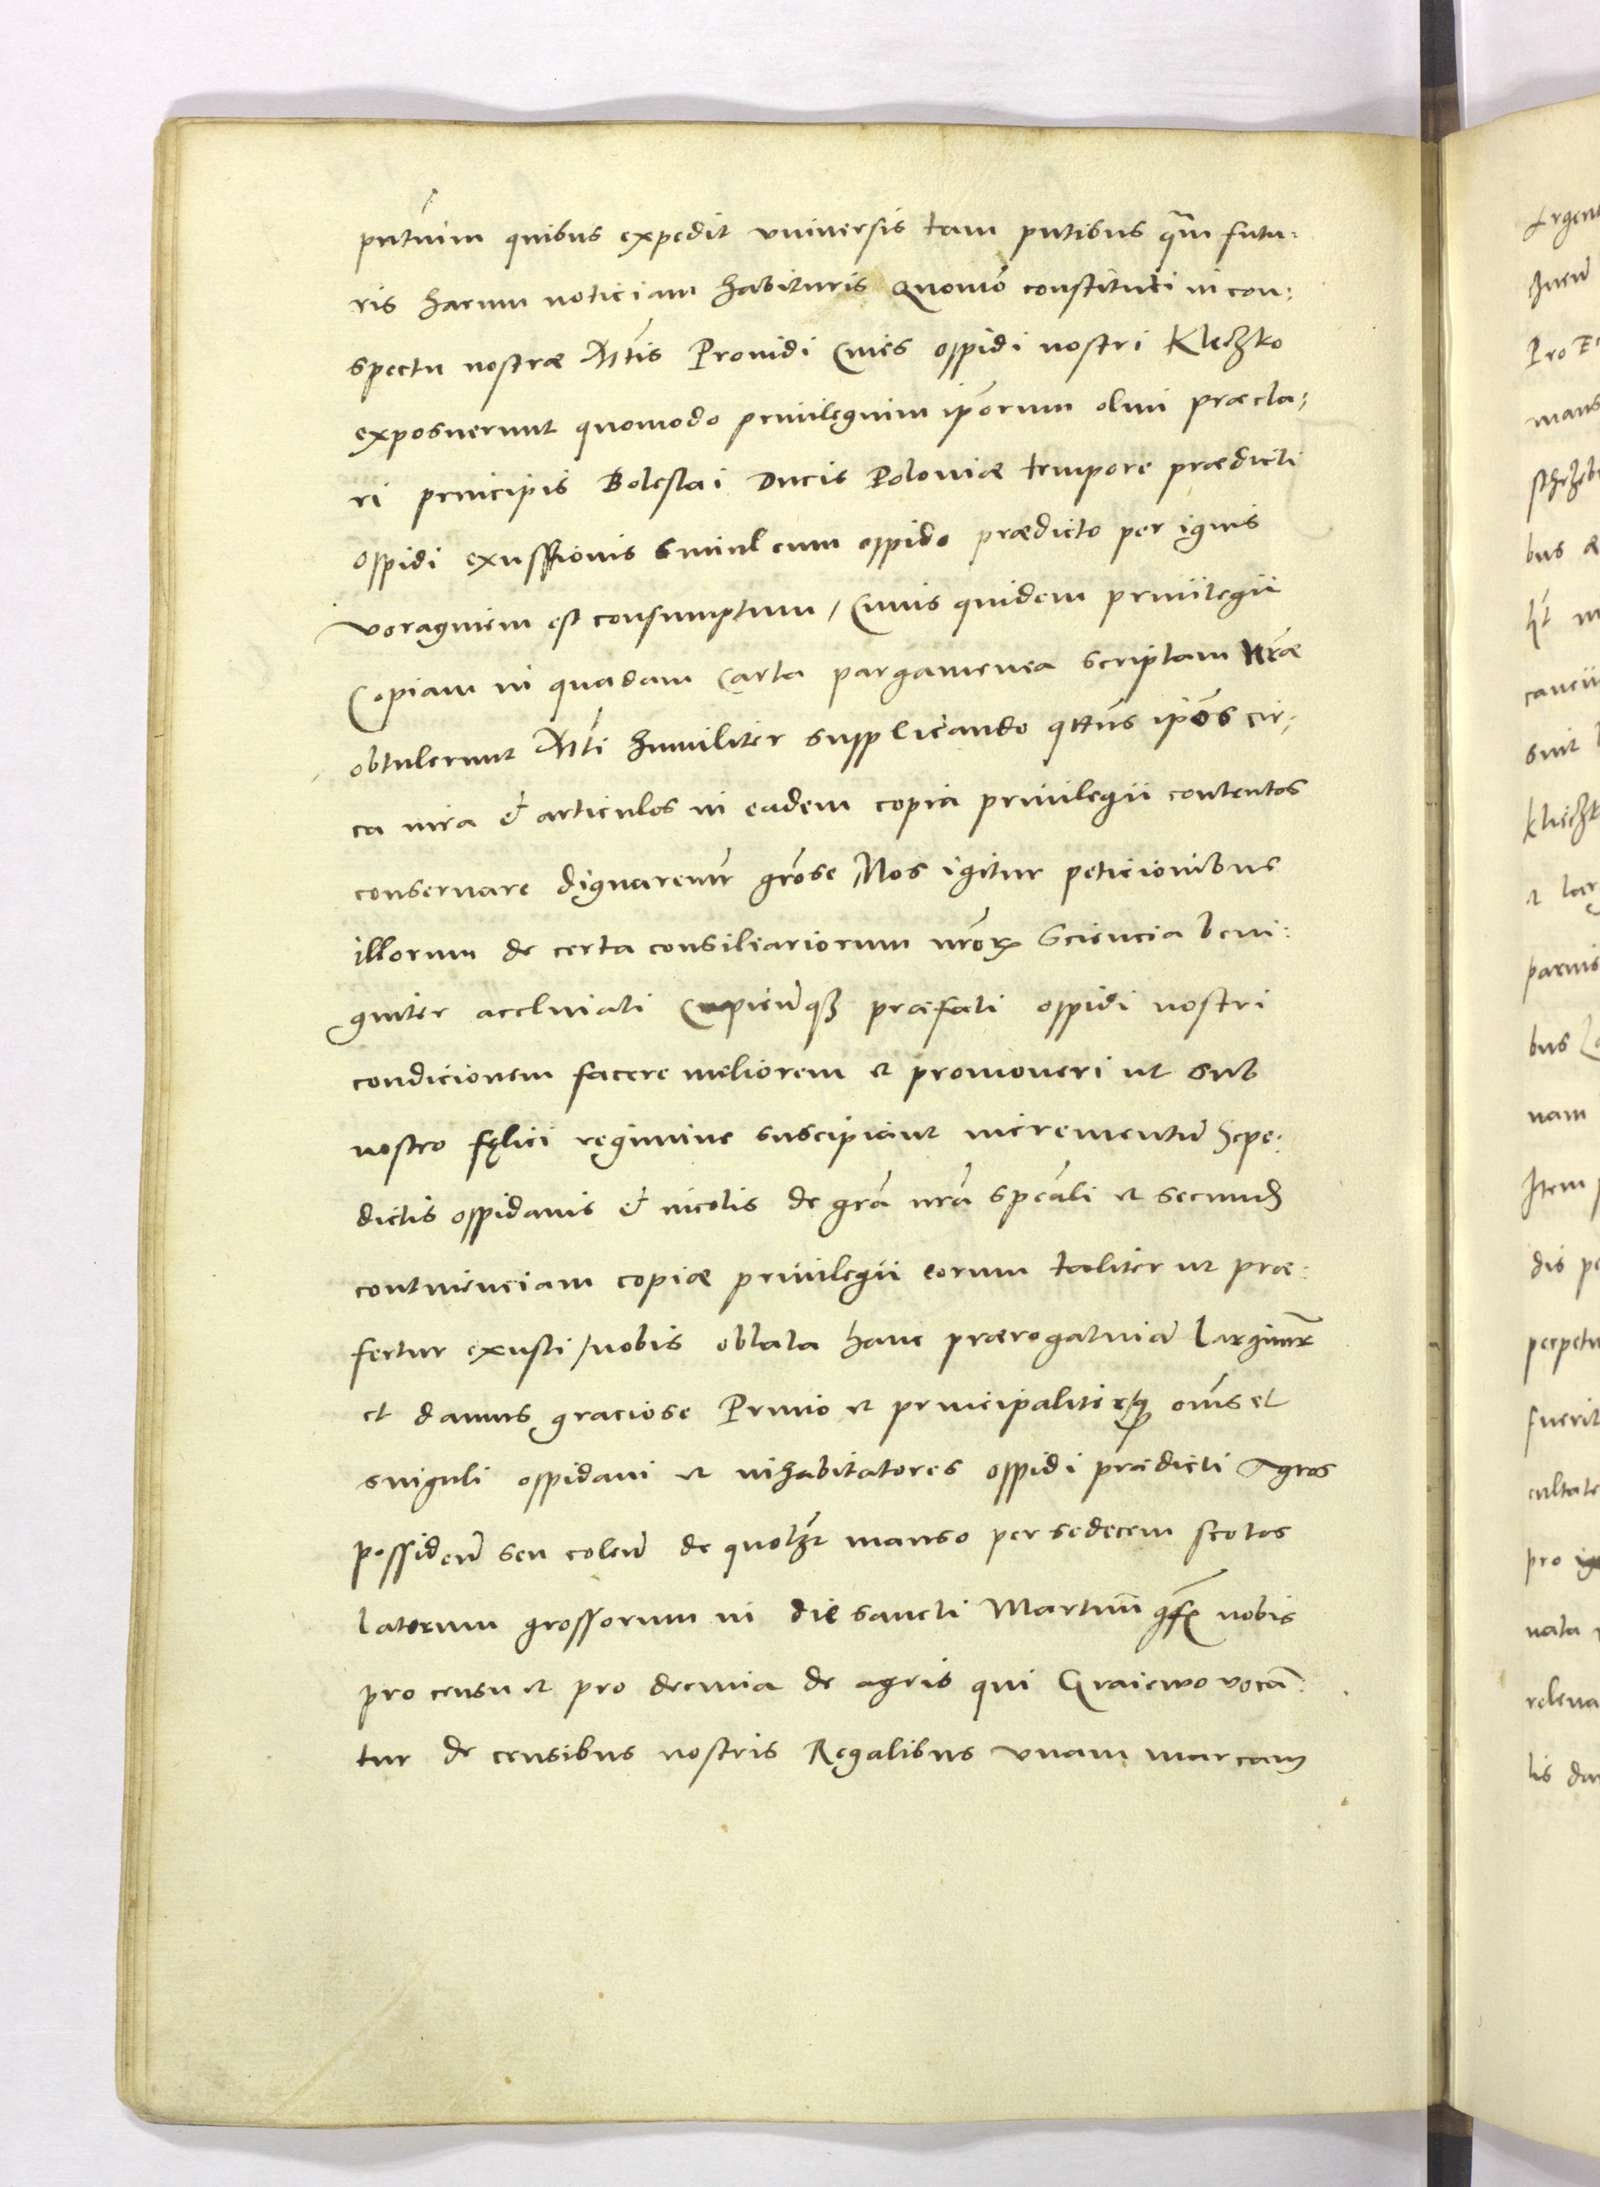 pñtium quibus expedit vniversis tam pñtibus q̃m futu:
ris harum noticiam habituris Quomõ constituti in con:
spectu nostræ Mtĩs Prouidi Ciues oppidi nostri Kleczko
exposuerunt quomodo priuilegium ip̃orum olim præcla:
ri principis Boleslai Ducis Poloniæ tempore prædicti
oppidi exustionis simul cum oppido prædicto per ignis
voraginem est consumptum / Cuius quidem priuilegii
Copiam in quadam Carta pargamenea scriptam nr̃æ
obtulerunt Mtĩ humiliter supplicando qtñs ip̃os cir:
ca iura & articulos in eadem copia priuilegii contentos
conseruare dignaremr̃ grõse Nos igitur peticionibus
illorum de certa consiliariorum nrõrꝝ sciencia beni:
gniter acclinati Cupienq̃ꝫ præfati oppidi nostri
condicionem facere meliorem et promoueri ut sub
nostro fęlici regimine suscipiant incrementũ Sepe:
dictis oppidanis & incolis de grã nrã speãli et secund
continenciam copiæ priuilegii eorum taliter ut præ:
fertur exusti / nobis oblata hanc prærogatiuã Largimr̃
et damus graciose Primo et principaliter qꝫ om̃s et
singuli oppidani et inhabitatores oppidi prædicti Agros
possideñ seu coleñ de quolꝫt manso per sedecem scotos
latorum grossorum in die sancti Martini nobis
pro censu et pro decima de agris qui Graiewo vocã:
tur de censibus nostris Regalibus vnam marcam
Pro
mans
bus
Item
perpetu
fuerit
cultate
pro
nata
releua